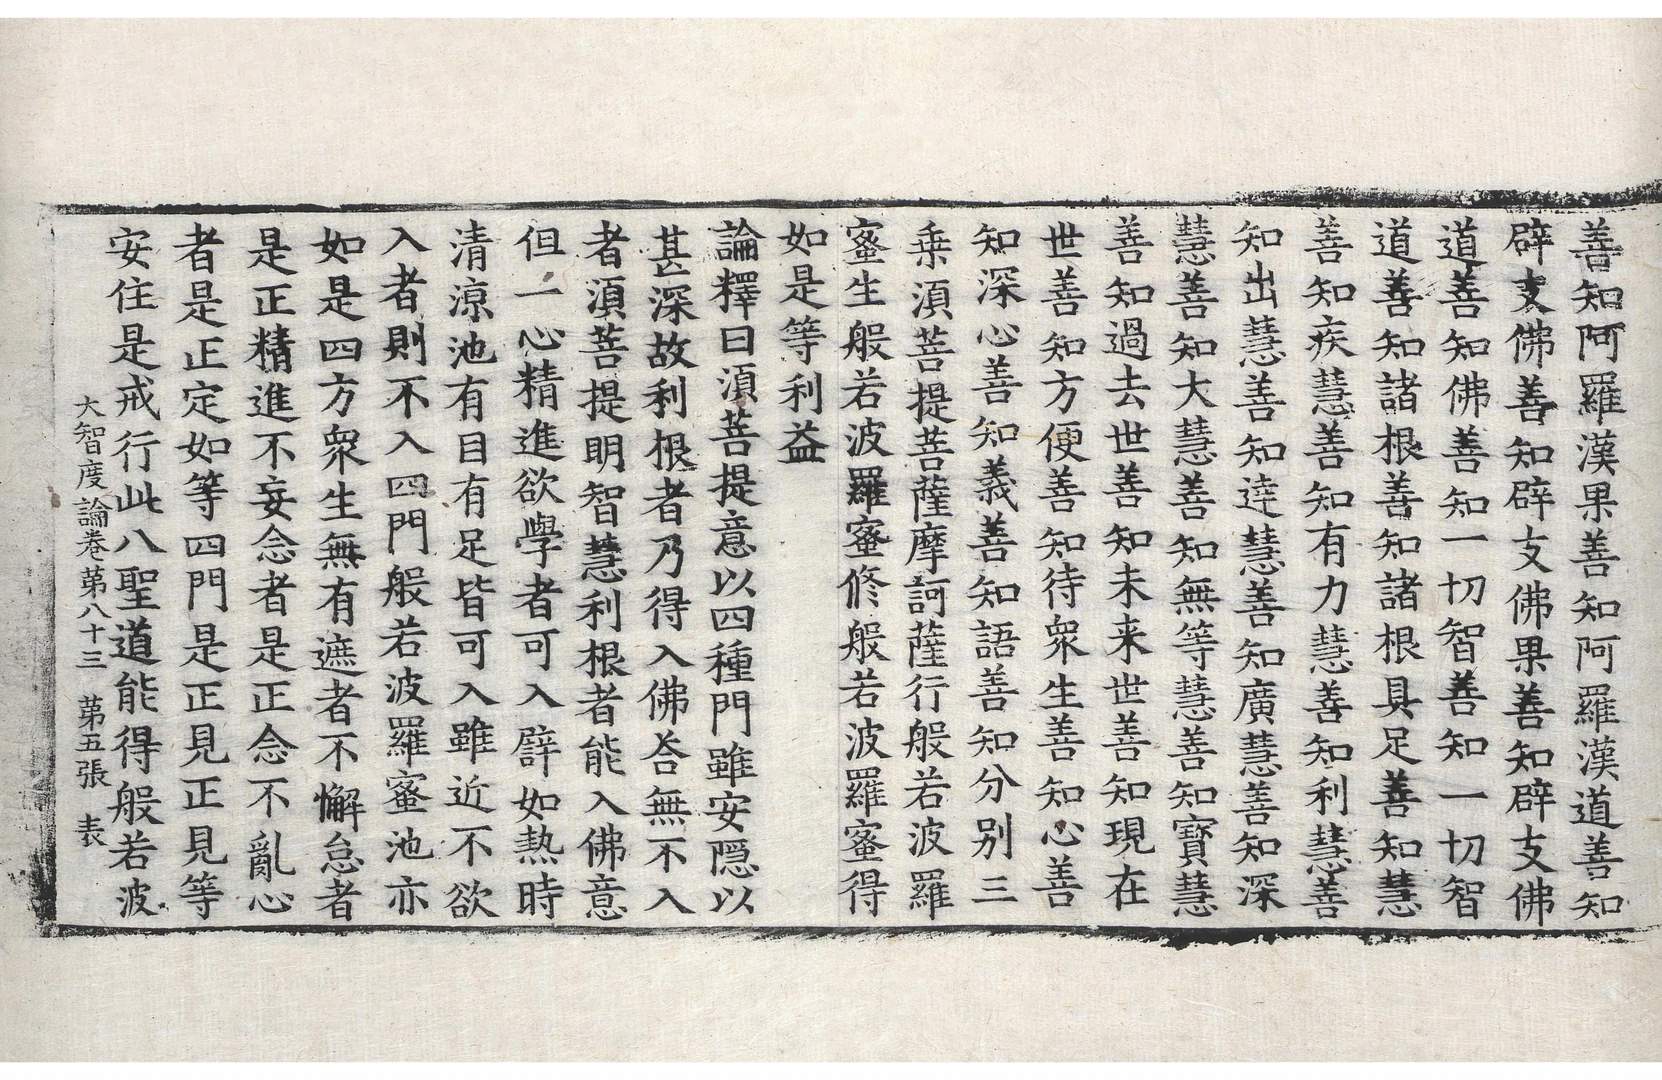 善知阿羅漢果善知阿羅漢道善知
辟支佛善知辟支佛果善知辟支佛
道善知佛善知一切智善知一切智
道善知諸根善知諸根具足善知慧
善知疾慧善知有力慧善知利慧善
知出慧善知達慧善知廣慧善知深
慧善知大慧善知無等慧善知寶慧
善知過去世善知未来世善知現在
世善知方便善知待衆生善知心善
知深心善知義善知語善知分别三
乗湏菩提菩薩摩訶薩行般若波羅
蜜生般若波羅蜜修般若波羅蜜得
如是等利益
論釋曰湏菩提意以四種門雖安隠以
甚深故利根者乃得入佛荅無不入
者湏菩提明智慧利根者能入佛意
但一心精進欲學者可入譬如熱時
清凉池有目有足皆可入雖近不欲
入者則不入四門般若波羅蜜池亦
如是四方衆生無有遮者不懈怠者
是正精進不妄念者是正念不亂心
者是正定如等四門是正見正見等
安住是戒行此八聖道能得般若波
大智度論卷第八十三　第五張　表